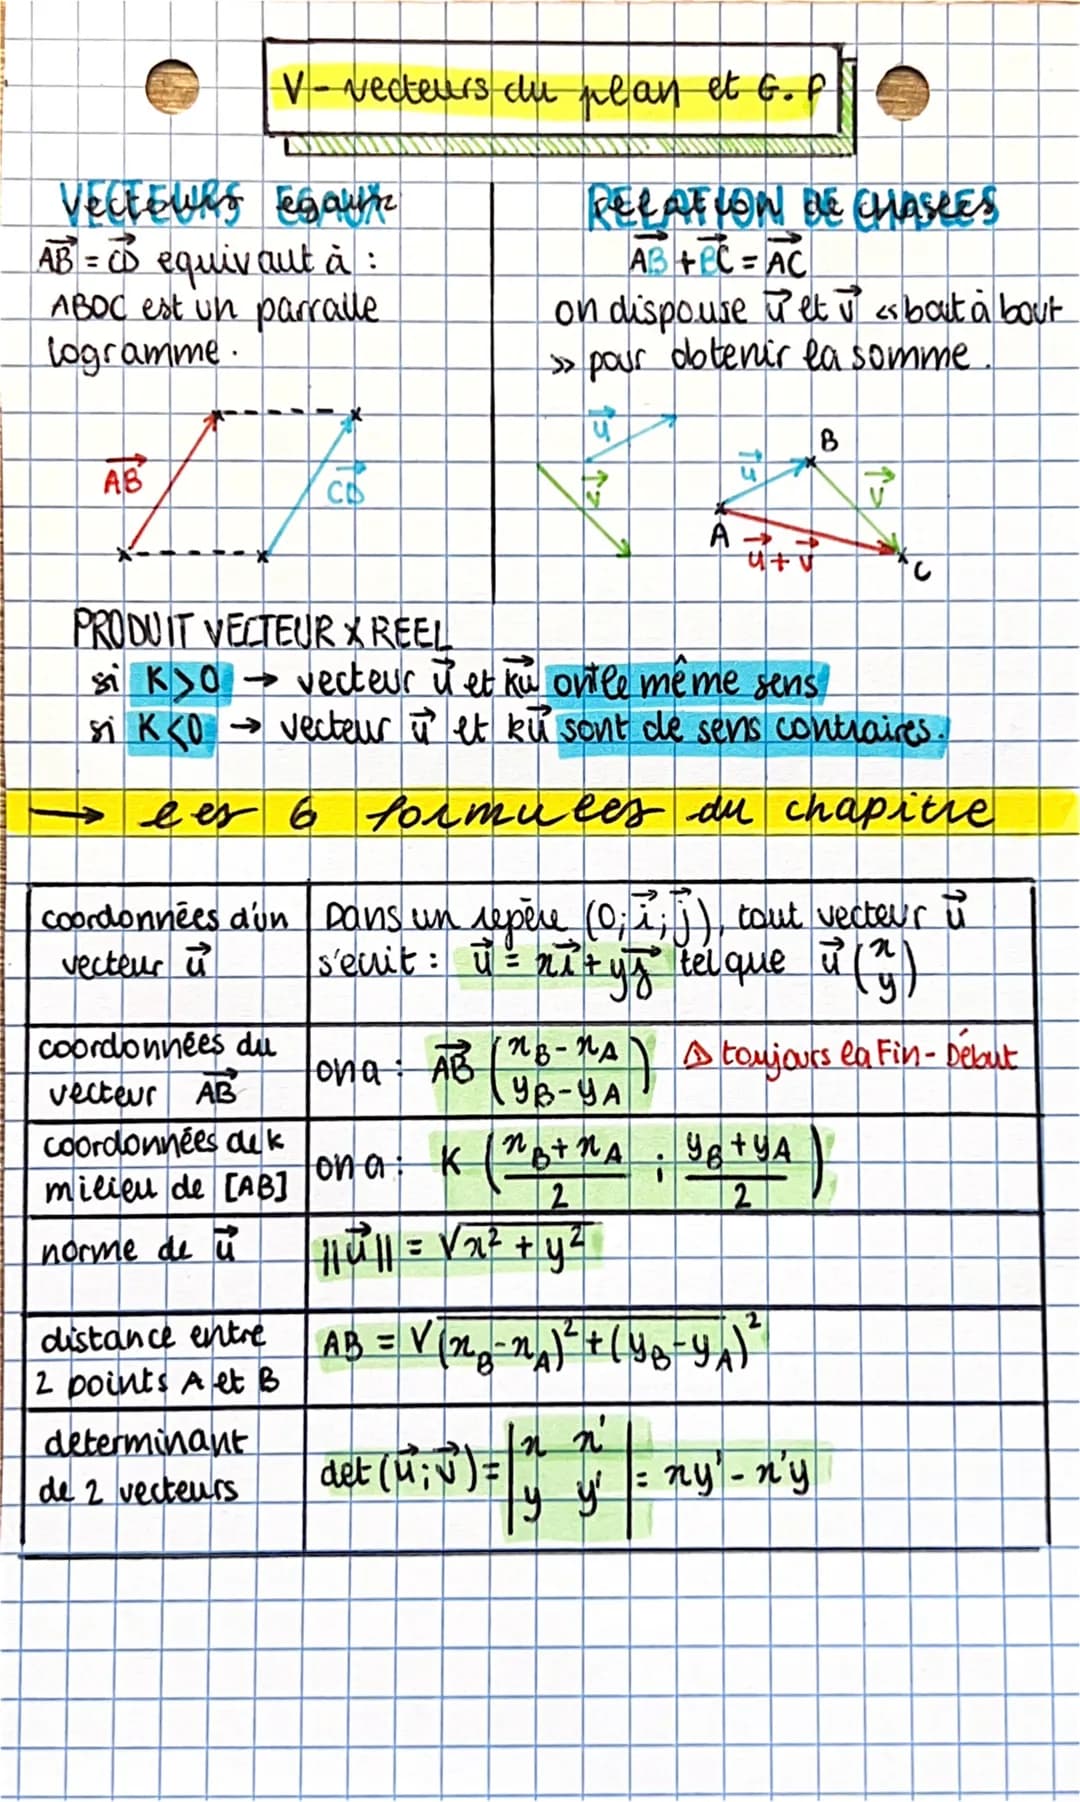 V - vecteurs du plan et G.P
VECTEURS EGAUX
AB = CD equivaut à :
ABDC est un parralle
logramme.
AB
CD
RELATION DE CHASLES
AB + BC = AC
on dispouse u et v « bout à bout
» pour obtenir la somme.
u
v
u
B
v
A
u + v
C
PRODUIT VECTEUR X REEL
si K>0 → vecteur u et ku ont le même sens
si K<0 → vecteur u et ku sont de sens contraires.
→ les 6 formules du chapitre
coordonnées d'un
vecteur u
Dans un repère (O; i; j), tout vecteur u
s'ecrit : u = xi + yj tel que u (x
y)
coordonnées du
vecteur AB
on a : AB (xB - xA
yB - yA)
⚠ toujours la Fin - Début
coordonnées de k
milieu de [AB]
on a : K (xB + xA / 2 ; yB + yA / 2)
norme de u
||u|| = √x² + y²
distance entre
2 points A et B
AB = √(xB - xA)² + (yB - yA)²
determinant
de 2 vecteurs
det (u; v) = |x x'
y y'| = xy' - x'y